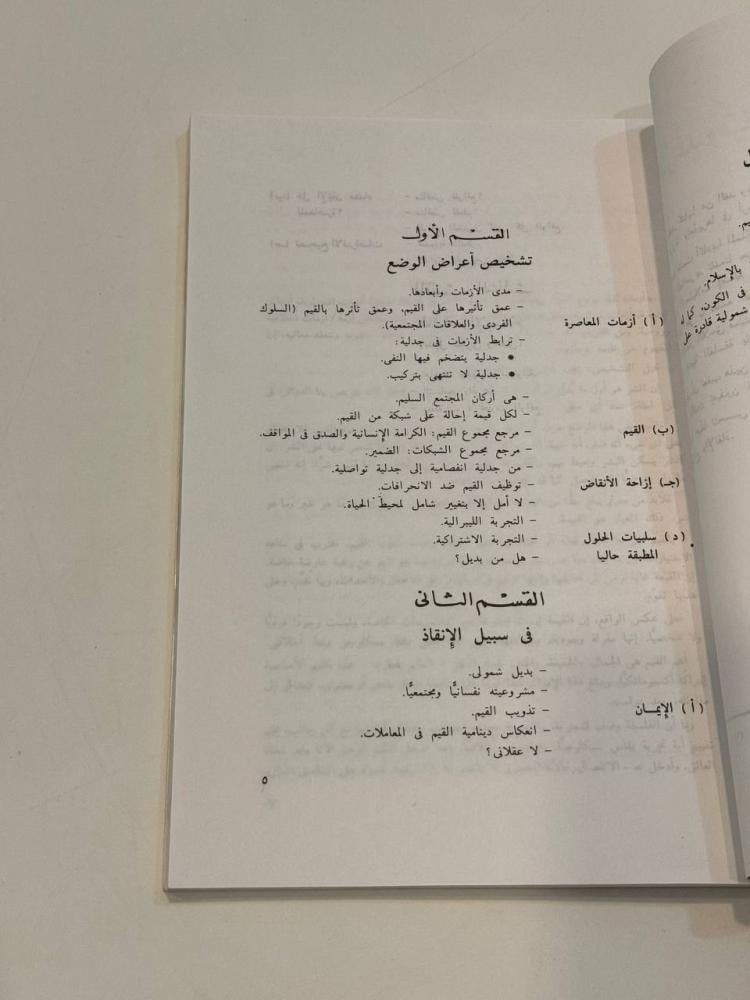 القسم الأول
تشخيص أعراض الوضع
– مدى الأزمات وأبعادها.
– عمق تأثيرها على القيم، وعمق تأثرها بالقيم (السلوك
( أ ) أزمات المعاصرة
الفردى والعلاقات المجتمعية).
– ترابط الأزمات فى جدلية:
● جدلية يتضخم فيها النفى.
● جدلية لا تنتهى بتركيب.
– هى أركان المجتمع السليم.
– لكل قيمة إحالة على شبكة من القيم.
(ب) القيم
– مرجع مجموع القيم: الكرامة الإنسانية والصدق فى المواقف.
– مرجع مجموع الشبكات: الضمير.
– من جدلية انفصامية إلى جدلية تواصلية.
(جـ) إزاحة الأنقاض
– توظيف القيم ضد الانحرافات.
– لا أمل إلا بتغيير شامل لمحيط الحياة.
– التجربة الليبرالية.
(د) سلبيات الحلول
– التجربة الاشتراكية.
المطبقة حاليا
– هل من بديل؟
القسم الثانى
فى سبيل الإنقاذ
– بديل شمولى.
– مشروعيته نفسانيًّا ومجتمعيًّا.
( أ ) الإيمان
– تذويب القيم.
– انعكاس دينامية القيم فى المعاملات.
– لا عقلانى؟
٥
بالإسلام.
فى الكون، كما
شمولية قادرة